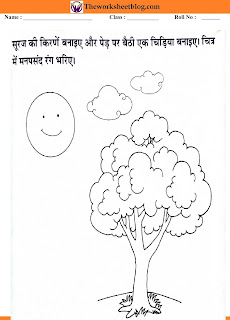 Theworksheetblog.com
Name : Class : Roll No :
सूरज की किरणें बनाइए और पेड़ पर बैठी एक चिड़िया बनाइए। चित्र
में मनपसंद रंग भरिए।